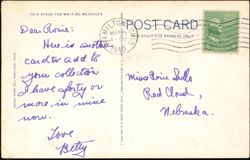 THIS SPACE FOR WRITING MESSAGES
POST CARD
THIS SPACE FOR ADDRESS ONLY
HAMILTON
Dear Rosie:
Here is another
card to add to
your collection
I have forty or
more in mine
now.
Love
Betty
Miss Rosie
Red Cloud,
Nebraska.